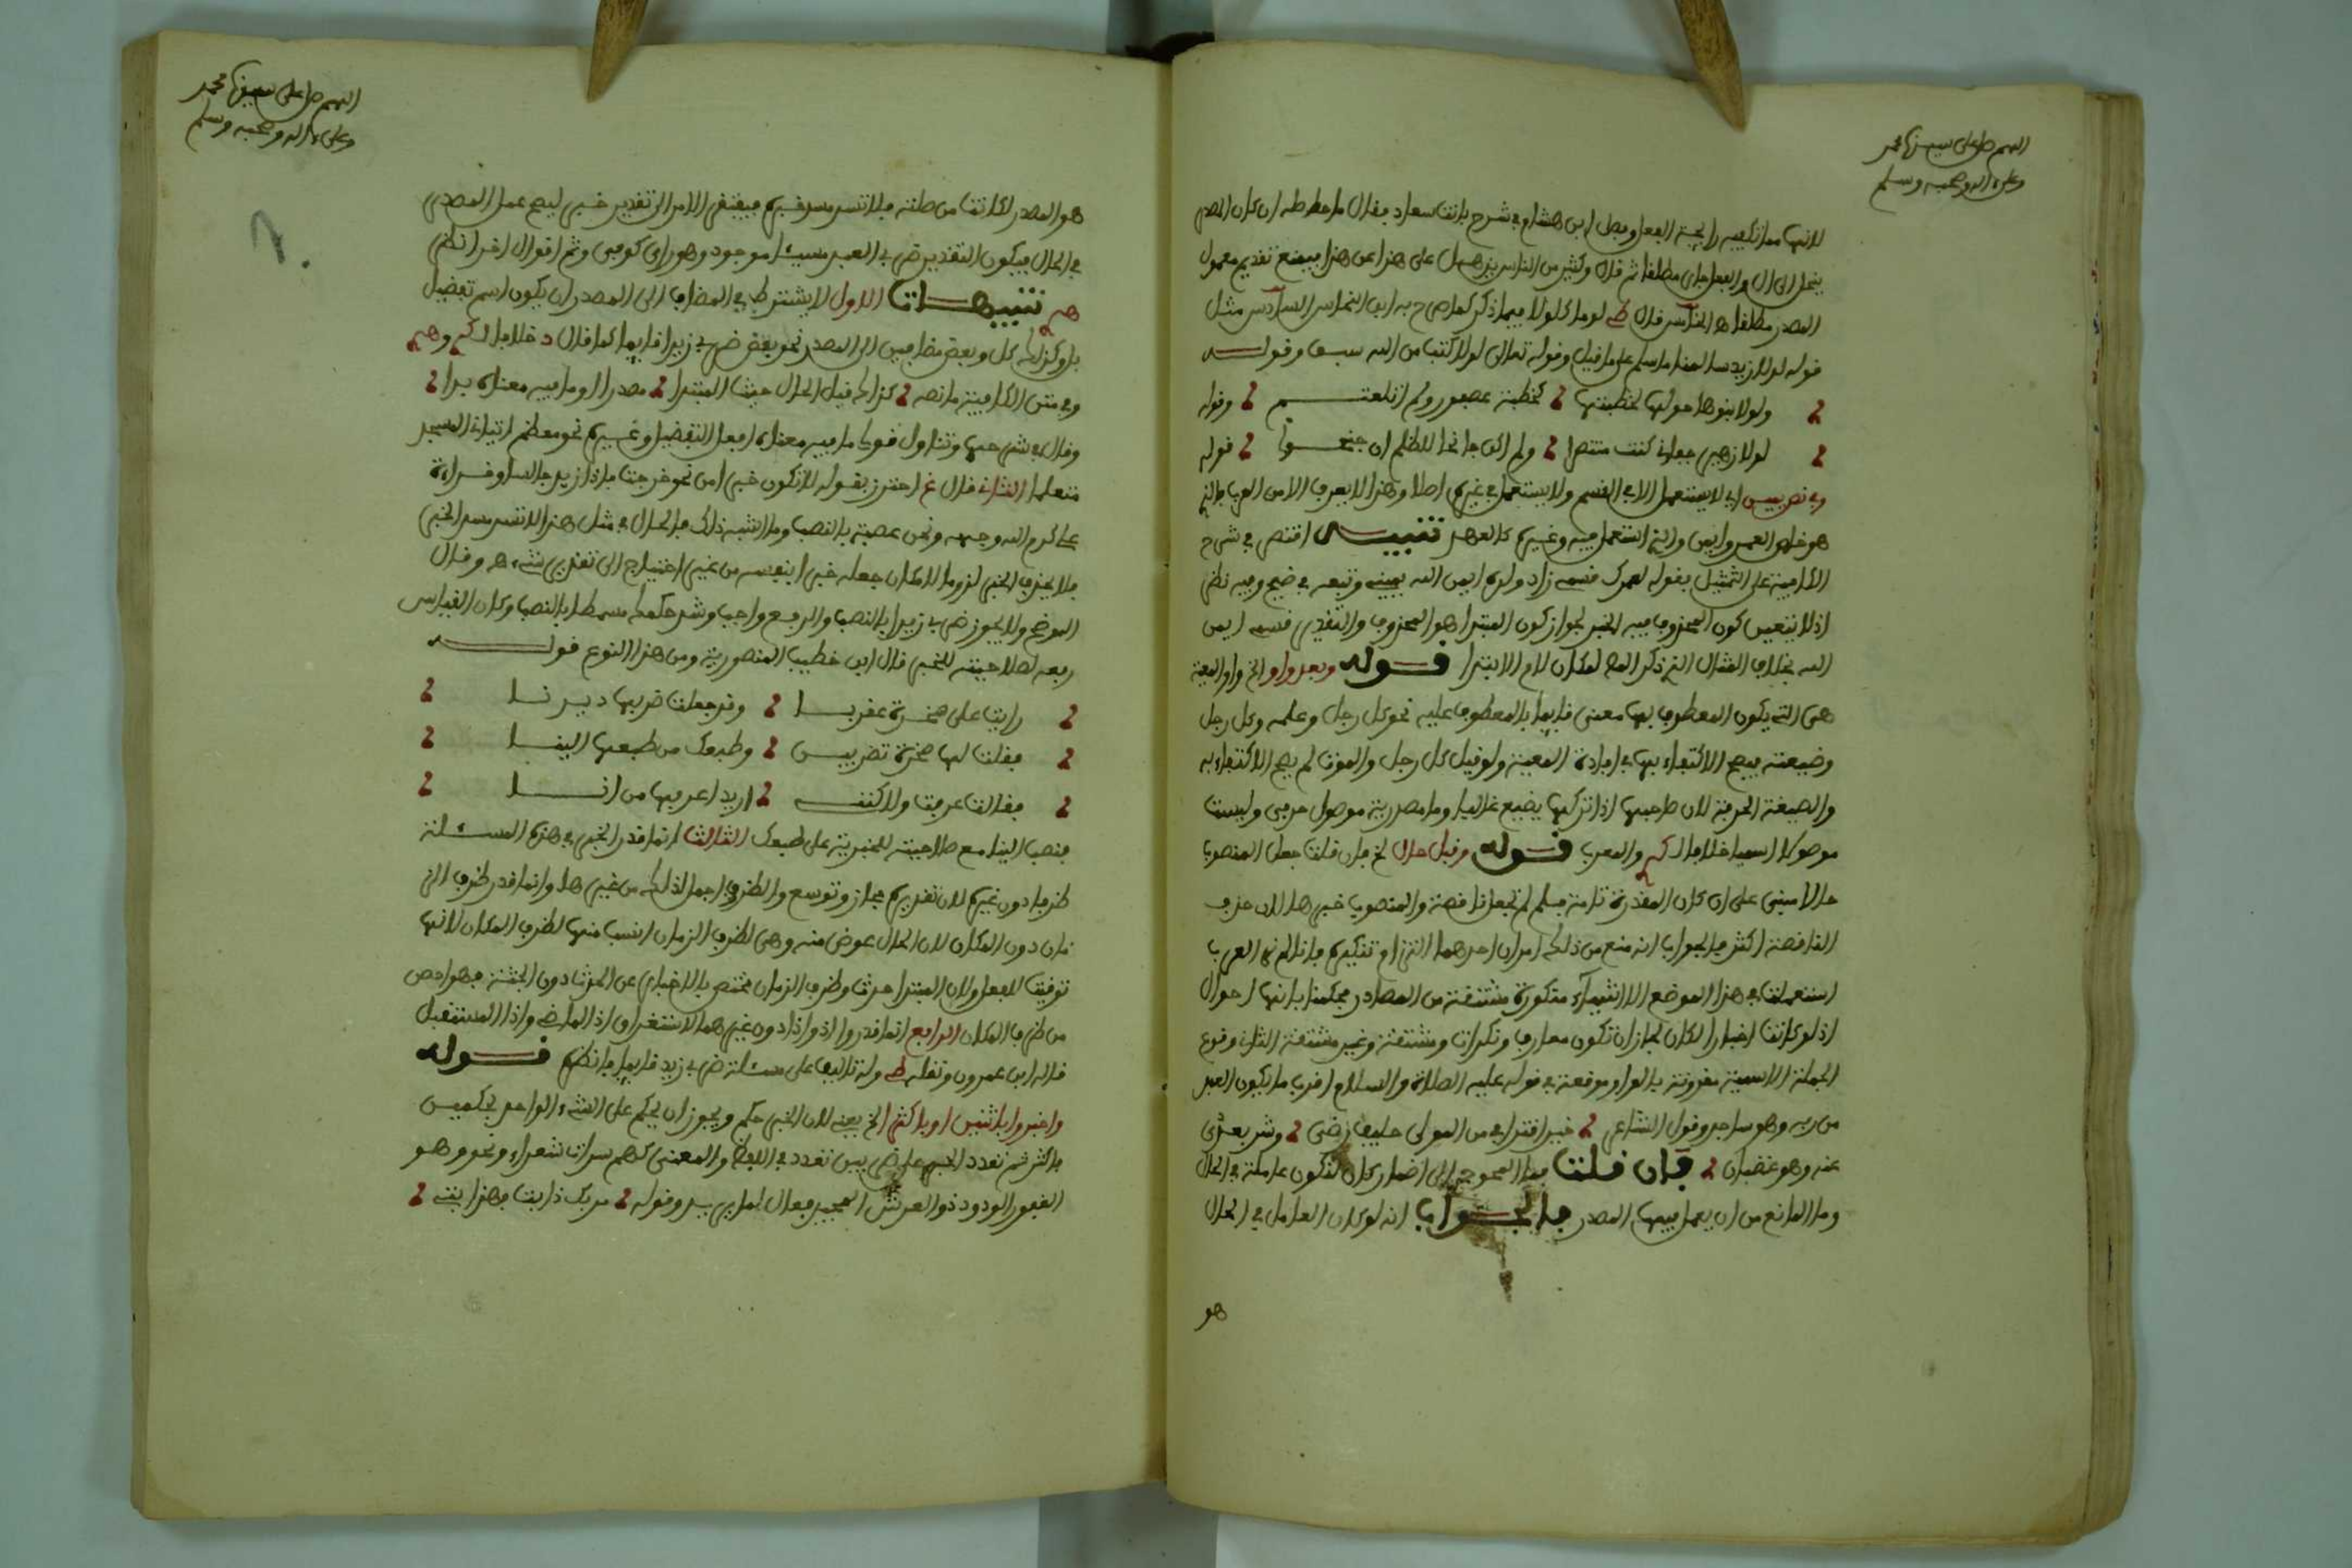 اللهم صل على سيدنا محمد
وعلى ءاله وصحبه وسلم
لانها مما تكفيه رايحة الفعل وفصل ابن هشام في شرح بانت سعاد فقال ما حاصله ان كان المصدر
ينحل الى ان والفعل مطلقا ثم قال وكثير من الناس يذهل على هذا عن هذا فيمنع تقديم معمول
المصدر مطلقا هـ الخامس قال لو ما كلولا فيما ذكر كما صرح به ابن النحاس السادس مثل
قوله لولا زيد سالمنا ما سلم على ما قيل وقوله تعالى لولا كتب من الله سبق وقولـــه
ولولا بنوها حولها لخطبتها كخطبة عصفور ولم اتلعثـــم وقوله
لولا زهير جفاني كنت منتصرا ولم اكن جانحا للظلم ان جنحـــوا قوله
وفي نص يمين اي لا يستعمل الا في القسم ولا يستعمل في غيره اصلا وهذا لا يعرف الا من العرب فالذي
هو نص العمر وايمن والذي استعمل فيه وغيره كالعهد تنبيـــه اقتصر في شرح
الكافية على التمثيل بقوله لعمرك قسمي زاد ولده ايمن الله يميني وتبعه في ضيح وفيه نظر
اذ لا يتعين كون المحذوف فيه الخبر لجواز كون المبتدا هو المحذوف والتقدير قسمي ايمن
الله بخلاف المثال الذي ذكر الم لمكان لام الابتدا قـــوله وبعد واو الخ واو المعية
هي التي يكون المعطوف بها معنى قايما بالمعطوف عليه نحو كل رجل وعلمه وكل رجل
وضيعته فيصح الاكتفاء بها في افادة المعية ولو قيل كل رجل والموت لم يصح الاكتفاء به
والضيعة الحرفة لان صاحبها اذا تركها يضيع غالبا وما مصدرية موصول حرفي وليست
موصولا اسميا خلافا لـ والمعرب قـــوله وقبل حال الخ فان قلت جعل المنصوب
حالا مبني على ان كان المقدرة تامة فلم لم تجعل ناقصة والمنصوب خبرها لان حذف
الناقصة اكثر فالجواب انه منع من ذلك امران احدهما التزام تنكيره فانا لم نر العرب
استعملت في هذا الموضع الا اسماء منكورة مشتقة من المصادر فحكمنا بانها احوال
اذ لو كانت اخبارا لكان لجاز ان تكون معارف ونكرات ومشتقة وغير مشتقة الثاني وقوع
الجملة الاسمية مقرونة بالواو موقعه في قوله عليه الصلاة والسلام اقرب ما يكون العبد
من ربه وهو ساجد وقول الشاعر خير اقترابي من المولى حليف رضى وشر بعدي
عنه وهو غضبان فان قلت فما المحوج الى اضمار كان لتكون عاملة في الحال
وما المانع من ان يعمل فيها المصدر فالجـــواب انه لو كان العامل في الحال
هو
اللهم صل على سيدنا محمد
وعلى ءاله وصحبه وسلم
هو المصدر لكانت من صلته فلا تسد مسد خبره فيفتقر الامر الى تقدير خبر ليصح عمل المصدر
في الحال فيكون التقدير ضربي العبد مسيئا موجود وهو راي كوفي وثم اقوال اخر انظر
هـ تنبيهـــات الاول لا يشترط في المضاف الى المصدر ان يكون اسم تفضيل
بل وكذلك كل وبعض مضافين الى المصدر نحو بعض ضربي زيدا قايما كما قال د خلافا لـ وهم
وفي متن الكافية ما نصه كذاك قبل الحال حيث المبتدا مصدر او ما فيه معناه بدا
وقال في شرحها وتناول قولي ما فيه معناه افعل التفضيل وغيره نحو معظم اتيانه المسجد
متعلما الثاني قال غ احترز بقوله لا تكون خبرا من نحو خرجت فاذا زيد جالسا وقراءة
علي كرم الله وجهه ونحن عصبة بالنصب وما اشبه ذلك فالحال في مثل هذا لا تسد مسد الخبر
فلا يحذف الخبر لزوما لامكان جعله خبرا بنفسه من غير احتياج الى تقدير شيء هـ وقال
الموضح ولا يجوز ضربي زيدا بالنصب والرفع واجب وشذ حكمك مسمطا بالنصب وكان القياس
رفعه لصلاحيته للخبر قال ابن خطيب المنصورية ومن هذا النوع قولـــه
رايت على صخرة عقربـــا وقد جعلت ضربها ديدنـــا
فقلت لها صخرة تضربيـــن وطبعك من طبعها الينـــا
فقالت عرفت ولاكننـــي اريد اعرفها من انـــا
فنصب الينا مع صلاحيته للخبرية على طبعك الثالث انما قدر الخبر في هذه المسئلة
ظرفا دون غيره لان تقديره مجاز وتوسع والظرف احمل لذلك من غيرها وانما قدر ظرف الزمان
زمان دون المكان لان الحال عوض منه وهي لظرف الزمان انسب منها لظرف المكان لانها
توقيت للفعل ولان المبتدا حدث وظرف الزمان مختص بالاخبار عن الحدث دون الجثة فهو اخص
من ظرف المكان الرابع انما قدروا اذ واذا دون غيرهما لاستغراق اذ الماضي واذا المستقبل
قاله ابن عمرون ونقله وله تاليف على مسئلة ضربي زيد قايما فانظره قـــوله
واخبروا باثنين او باكثرا الخ يعني لان الخبر حكم ويجوز ان يحكم على الشيء الواحد بحكمين
فاكثر ثم تعدد الخبر على ضربين تعدد في اللفظ والمعنى كهم سراة شعراء ونحو وهو
الغفور الودود ذو العرش المجيد فعال لما يريد وقوله من يك ذا بت فهذا بتي